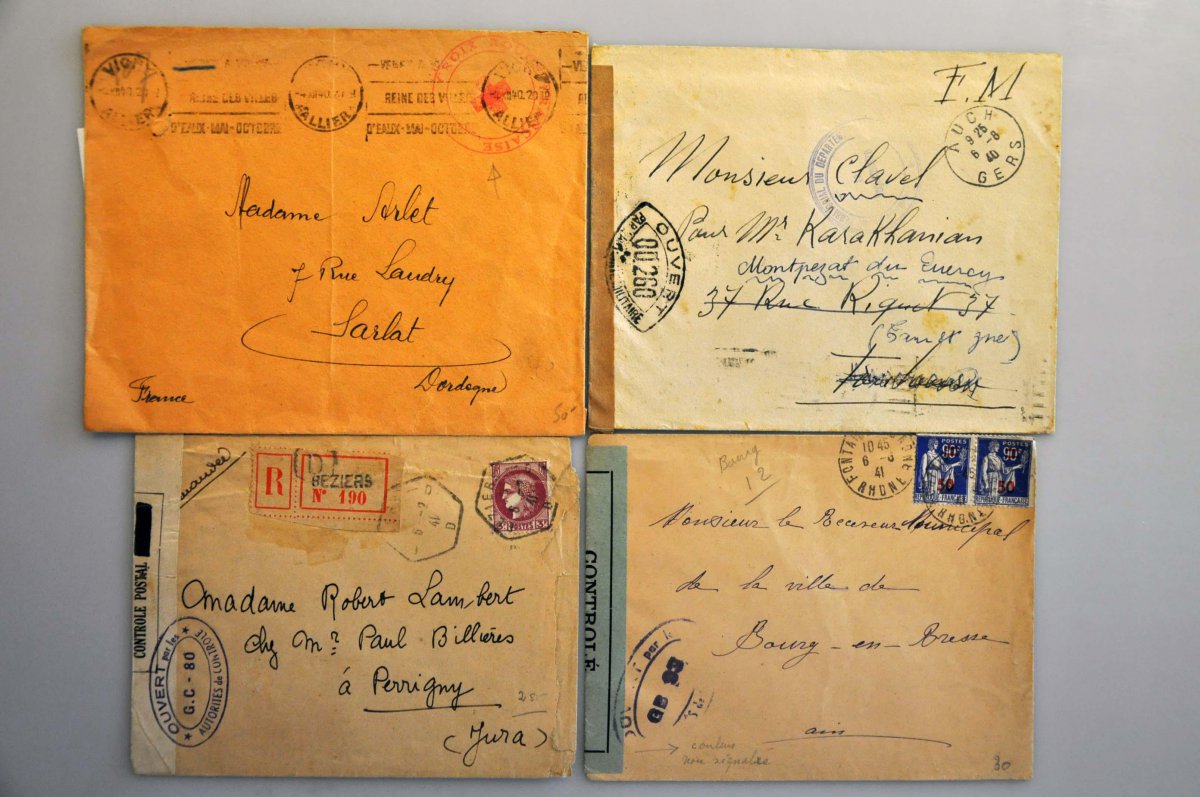 VICHY
ALLIER
REINE DES VILLES
D'EAUX-MAI-OCTOBRE
ALLIER
REINE DES VILLES
D'EAUX-MAI-OCTOBRE
CROIX ROUGE FRANÇAISE
VICHY
ALLIER
Madame Arlet
7 Rue Landry
Sarlat
Dordogne
France
50-
F.M
AUCH
9 25
6 -8
40
GERS
Monsieur Clavel
Pour Mr Karakhanian
Montpezat du Quercy
37 Rue Riquet 37
(Tarn et Gne)
OUVERT
OD.260
MILITAIRE
R
(D)
BEZIERS
N° 190
41
D
Madame Robert Lambert
chez Mr Paul Billières
à Perrigny
(Jura)
25-
CONTROLE POSTAL
OUVERT par les
G.C - 80
AUTORITES de CONTRÔLE
Bourg
12
10 45
6 -6
41
RHONE
POSTES
90c
50
REPUBLIQUE FRANÇAISE
POSTES
90c
50
REPUBLIQUE FRANÇAISE
Monsieur le Receveur Municipal
de la ville de
Bourg-en-Bresse
ain
CONTROLÉ
par les
GB 93
→ couleur
non signalée
30